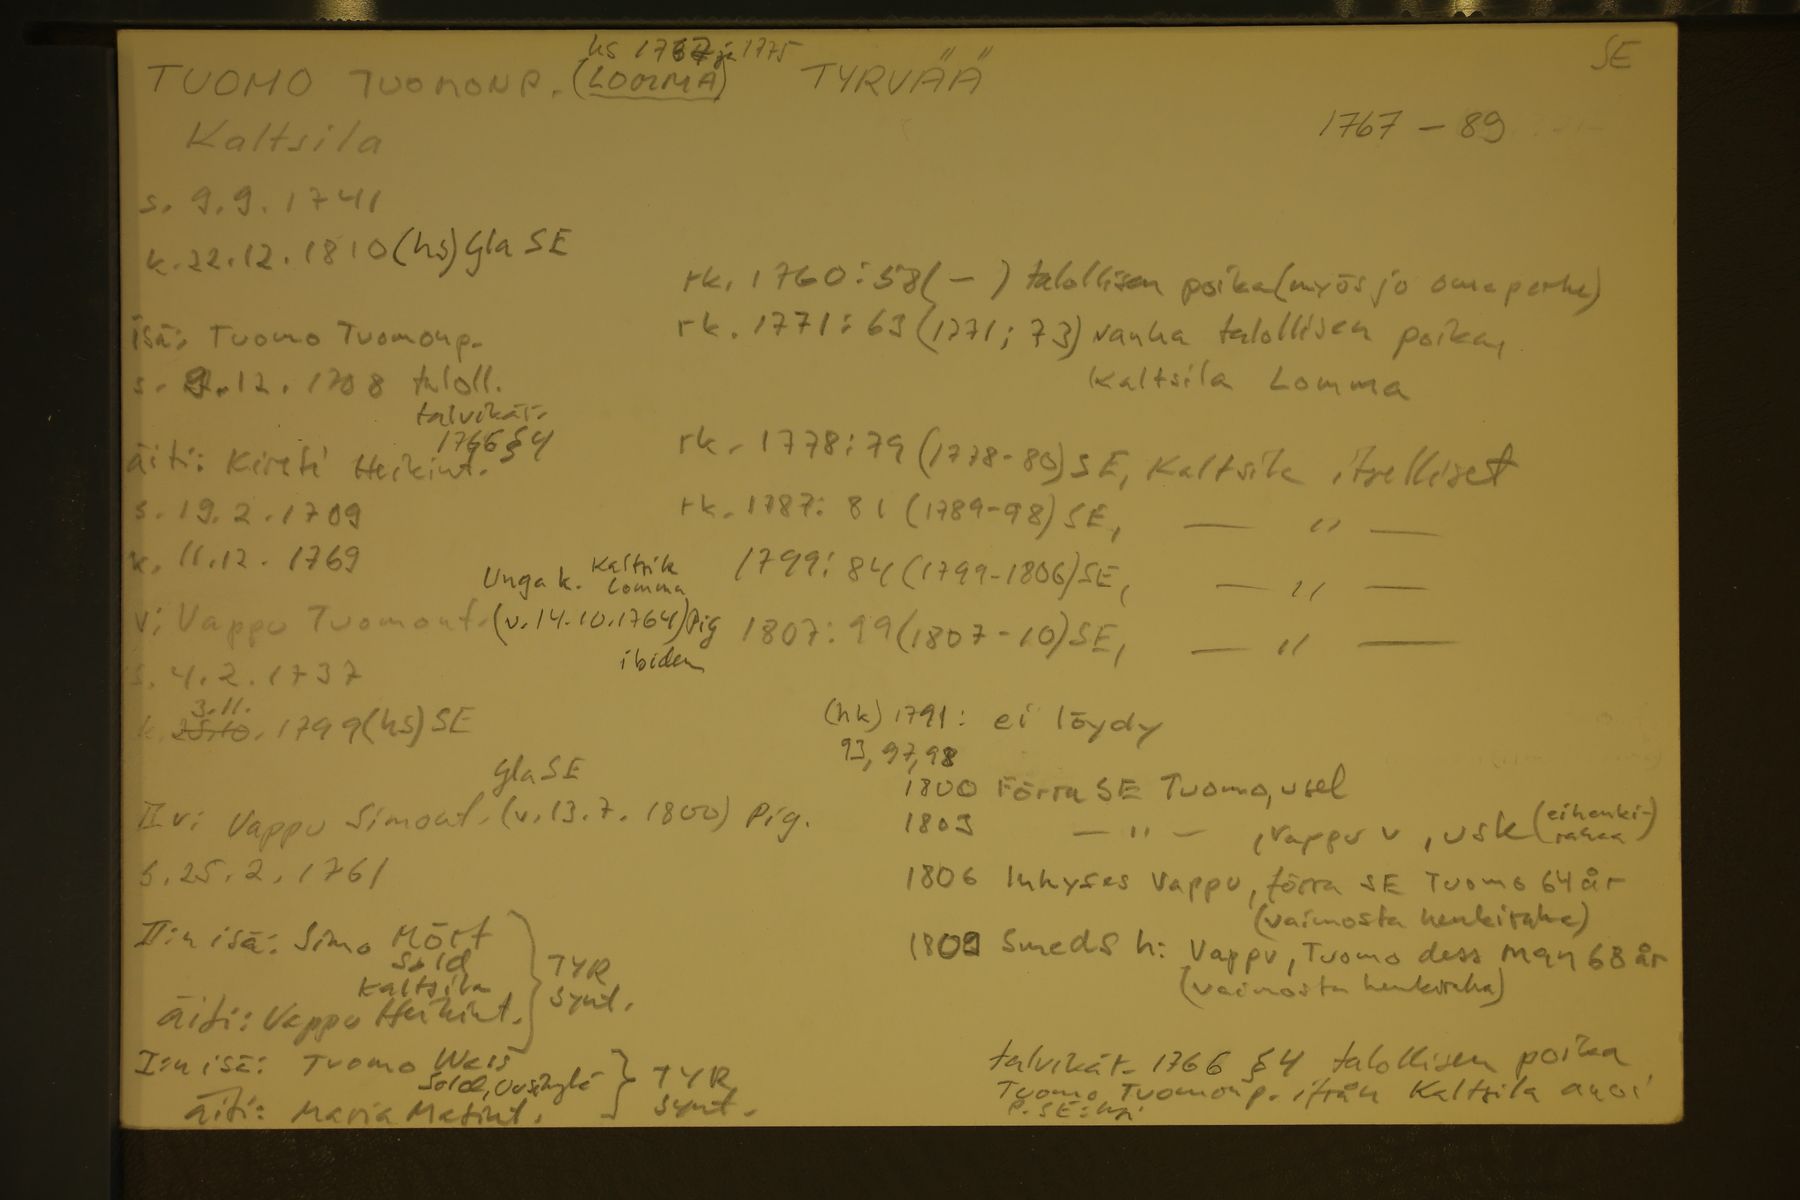 hs 1767 ja 1775
TUOMO TUOMONP. (LOOMA) TYRVÄÄ
SE
Kaltsila
1767 - 89
s. 9.9.1741
k. 22.12.1810 (hs) Gla SE
isä: Tuomo Tuomonp.
s. 9.12.1708 taloll.
talvikär.
1766 § 4
äiti: Kirsti Heikint.
s. 19.2.1709
k. 11.12.1769
Unga k. Kaltsila
Lomma
v: Vappu Tuomont. (v. 14.10.1764) Pig
ibidem
s. 4.2.1737
3.11.
k. 25.10. 1799 (hs) SE
Gla SE
II v: Vappu Simont. (v. 13.7.1800) Pig.
s. 25.2.1761
II:n isä: Simo Mört
Sold
Kaltsila
äiti: Vappu Heikint.
TYR
synt.
I:n isä: Tuomo Wass
Sold, Uusikylä
äiti: Maria Matint.
TYR
synt.
rk. 1760: 58 ( - ) talollisen poika (myös jo oma perhe)
rk. 1771: 63 (1771; 73) vanha talollisen poika,
Kaltsila Lomma
rk. 1778: 79 (1778-80) SE, Kaltsila itselliset
rk. 1787: 81 (1789-98) SE, — " —
1799: 84 (1799-1806) SE, — " —
1807: 99 (1807-10) SE, — " —
(hk) 1791: ei löydy
93, 97, 98
1800 Förra SE Tuomo, usel
1803 — " — , Vappu v, usk (ei henki-
rahaa)
1806 Inhyses Vappu, förra SE Tuomo 64 år
(vaimosta henkiraha)
1809 Smeds h: Vappu, Tuomo dess man 68 år
(vaimosta henkiraha)
talvikär. 1766 § 4 talollisen poika
Tuomo Tuomonp. ifrån Kaltsila anoi
p. SE:ksi